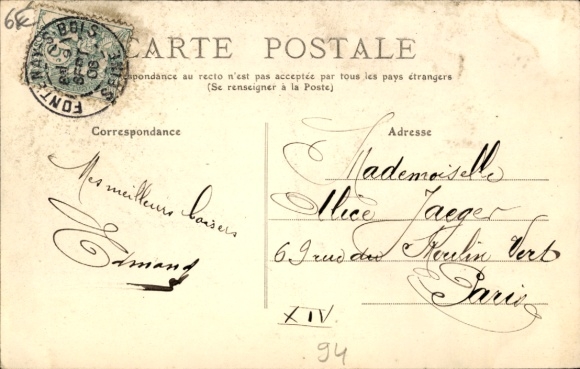 6€
CARTE POSTALE
respondance au recto n'est pas acceptée par tous les pays étrangers
(Se renseigner à la Poste)
FONTENAY-S-BOIS
SEINE
SEPT
06
Correspondance
Adresse
Mes meilleurs baisers
Edmond
Mademoiselle
Alice Jaeger
69 rue du Moulin Vert
Paris
XIV
94